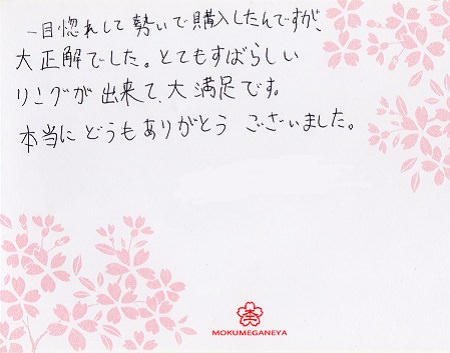 一目惚れして勢いで購入したんですが、
大正解でした。とてもすばらしい
リングが出来て、大満足です。
本当にどうもありがとうございました。
MOKUMEGANEYA